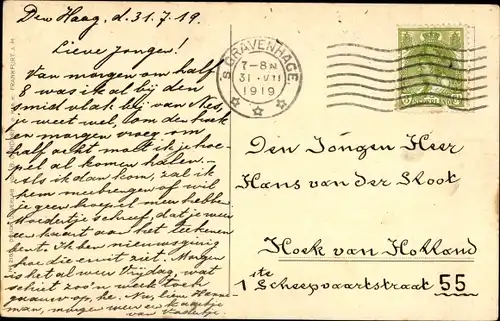 Den Haag, d. 31.7.19.
Lieve jongen!
Van morgen om half
8 was ik al bij den
smid vlak bij van Nes,
je weet wel, om den hoek
en morgen vroeg om
half acht mag ik je
pel al komen halen.
Als ik dan kom, zal ik
hem meebrengen of wil
je geen hoepel meer hebben
Moedertje schreef, dat je weer
een kaart aan het teekenen
bent. Ik ben nieuwsgierig
hoe die er uit ziet. Morgen
is het al weer Vrijdag, wat
schiet zoo'n week toch
gauw op, he. Nu, lieve Hanne-
man, morgen weer een kaartje
van Vadertje.
's GRAVENHAGE
7-8 N
31 VII
1919
Den Jongen Heer
Hans van der Sloot
Hoek van Holland
1ste Scheepvaartstraat 55